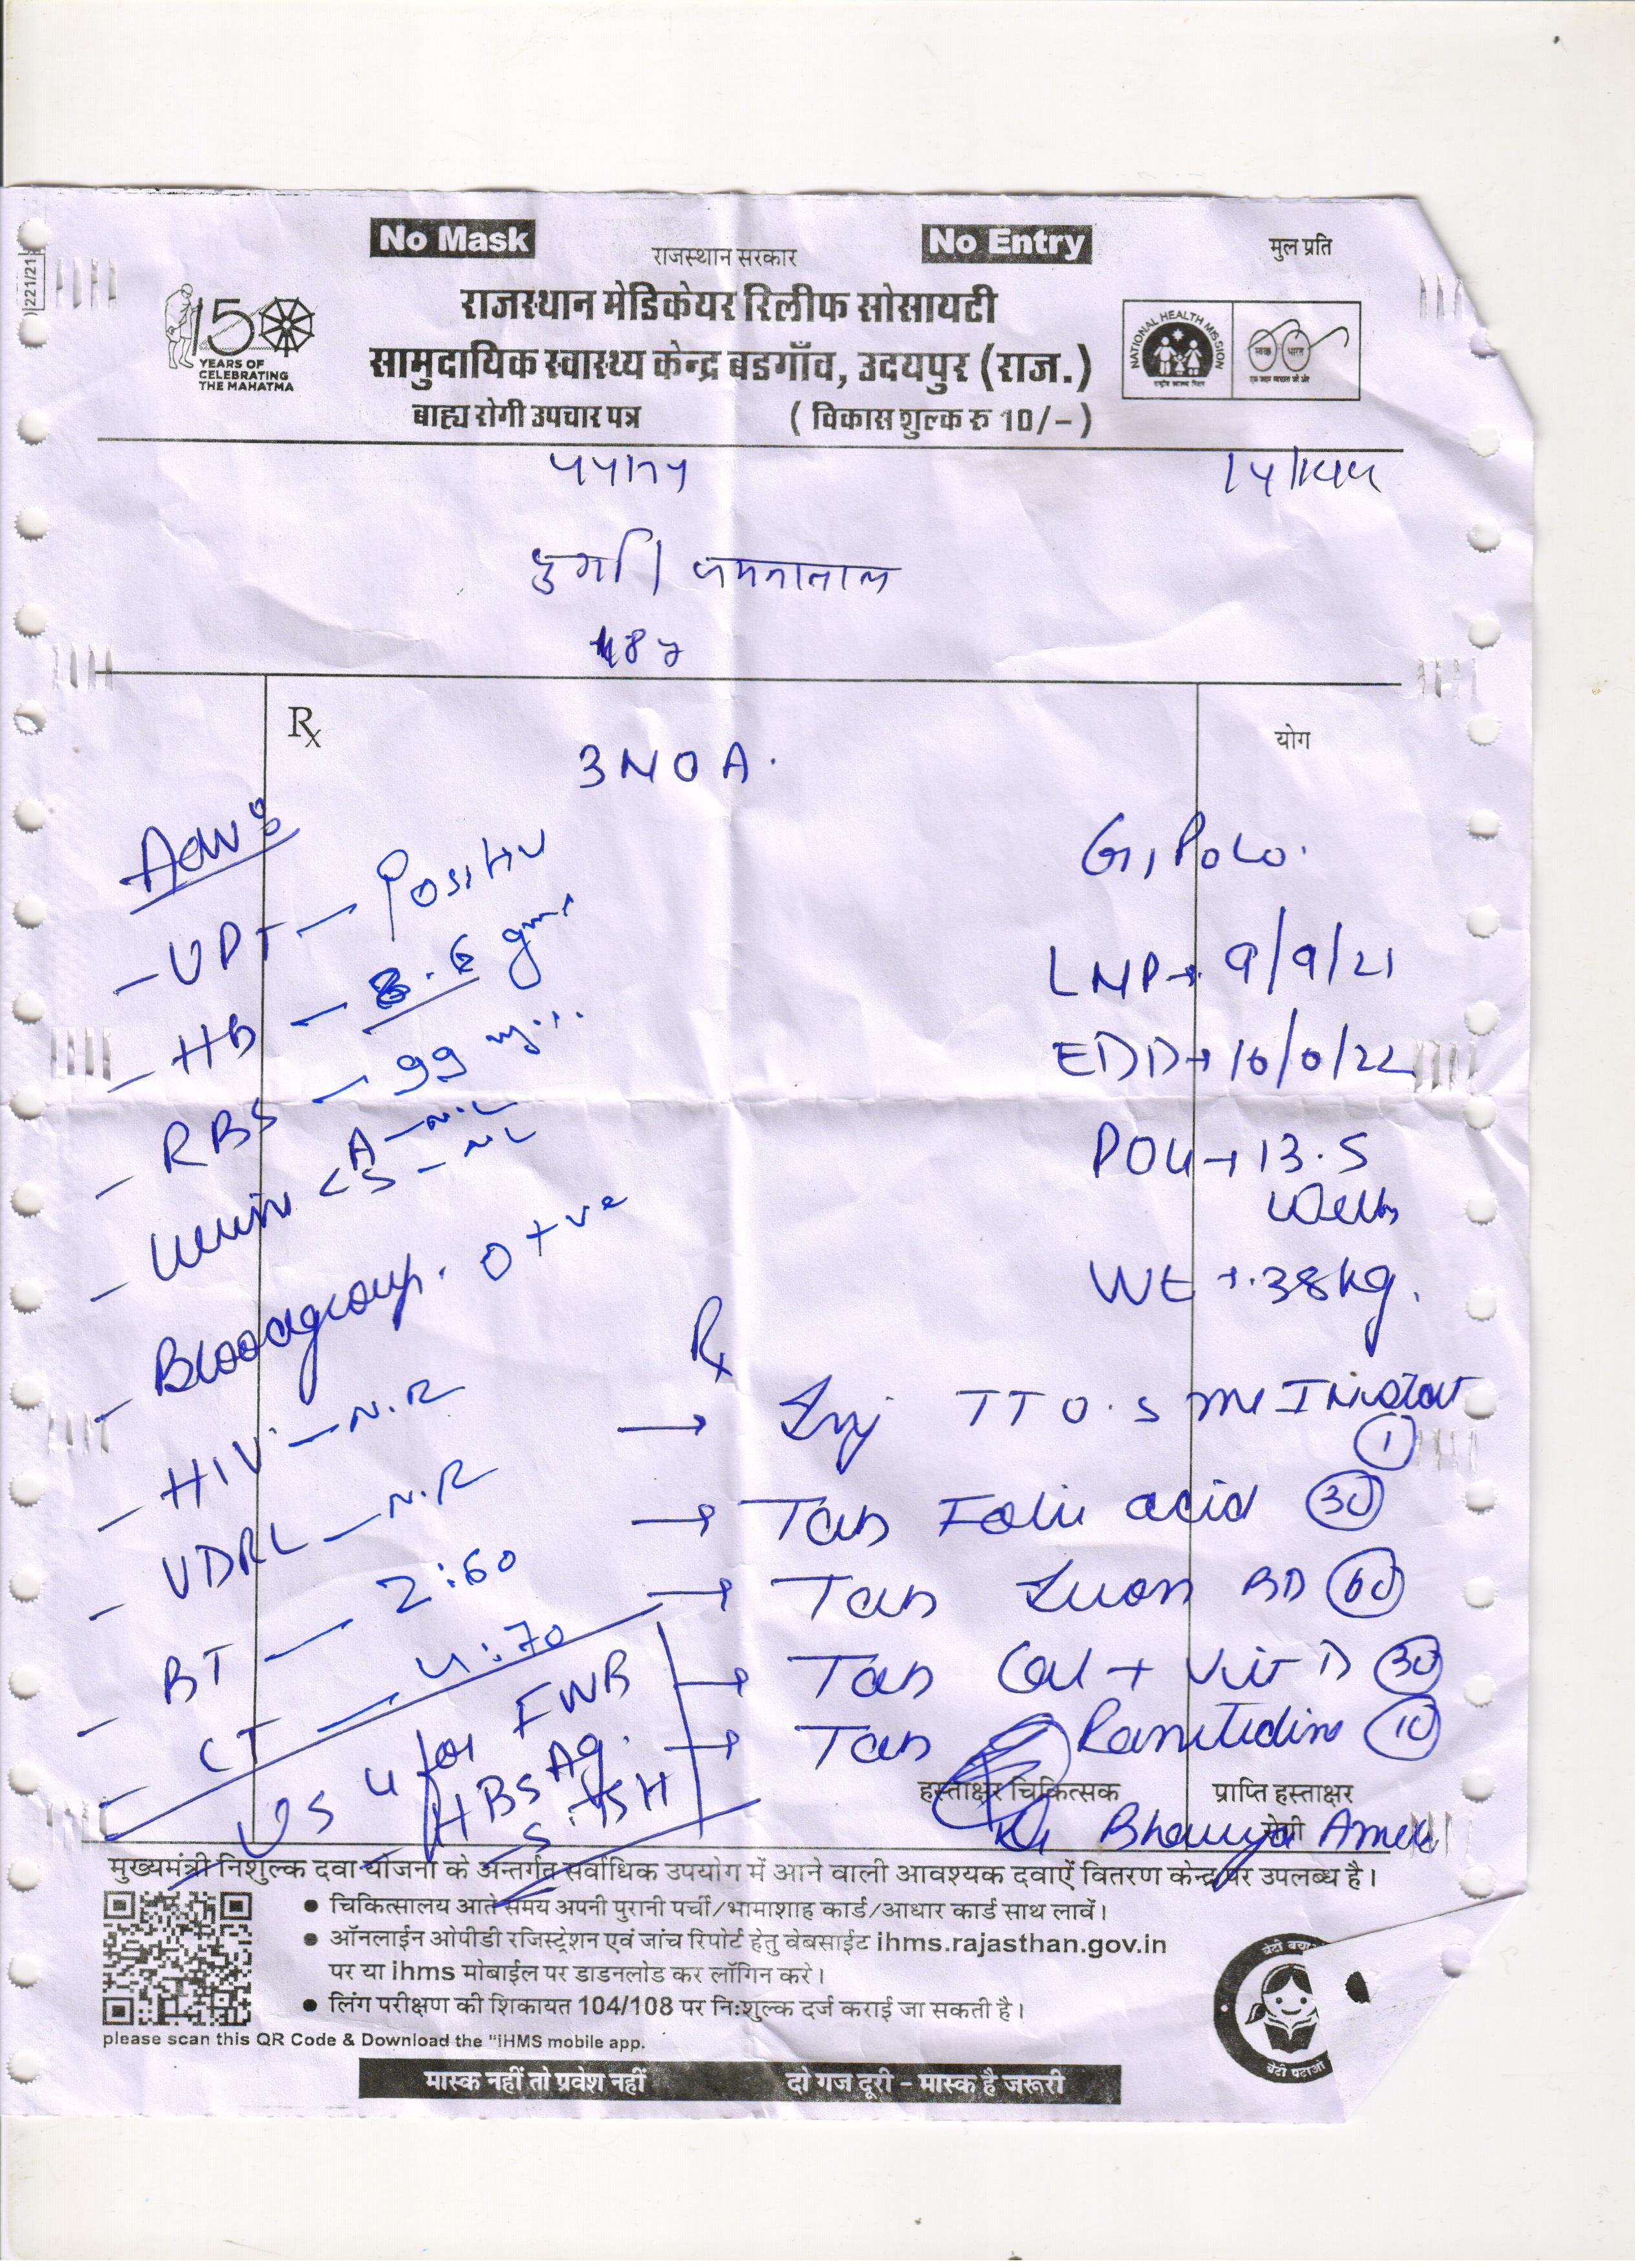 No Mask
राजस्थान सरकार
No Entry
मुल प्रति
221/21
राजस्थान मेडिकेयर रिलीफ सोसायटी
150
YEARS OF
CELEBRATING
THE MAHATMA
NATIONAL HEALTH MISSION
स्वच्छ भारत
सामुदायिक स्वास्थ्य केन्द्र बडगाँव, उदयपुर (राज.)
बाह्य रोगी उपचार पत्र ( विकास शुल्क रु 10/- )
दुर्गा / जमनालाल
18 y
Rx
योग
3 M O A.
Adv:
G1 P0L0.
- UPT - Positive
LMP → 9/9/21
- HB - 8.6 gm
EDD →
- RBS - 99 mg%
POG → 13.5
weeks
- Urine A - NIL
S - NIL
Wt → 38 kg.
- Blood group. O +ve
Rx
- HIV - N.R
→ Inj TT 0.5 ml I M stat
1
- VDRL - N.R
→ Tab Folic acid 30
- BT - 2:60
→ Tab Iron BD 60
- CT - 4:70
→ Tab Cal + Vit D 30
→ Tab Ranitidine 10
US G for FWB
HBSAg.
S. TSH
हस्ताक्षर चिकित्सक
प्राप्ति हस्ताक्षर
रोगी
Dr Bhavya
मुख्यमंत्री निशुल्क दवा योजना के अन्तर्गत सर्वाधिक उपयोग में आने वाली आवश्यक दवाऐं वितरण केन्द्र पर उपलब्ध है।
• चिकित्सालय आते समय अपनी पुरानी पर्ची/भामाशाह कार्ड/आधार कार्ड साथ लावें।
• ऑनलाईन ओपीडी रजिस्ट्रेशन एवं जांच रिपोर्ट हेतु वेबसाईट ihms.rajasthan.gov.in
पर या ihms मोबाईल पर डाडनलोड कर लॉगिन करे।
• लिंग परीक्षण की शिकायत 104/108 पर निःशुल्क दर्ज कराई जा सकती है।
please scan this QR Code & Download the "iHMS mobile app.
बेटी पढाओ
मास्क नहीं तो प्रवेश नहीं दो गज दूरी - मास्क है जरूरी